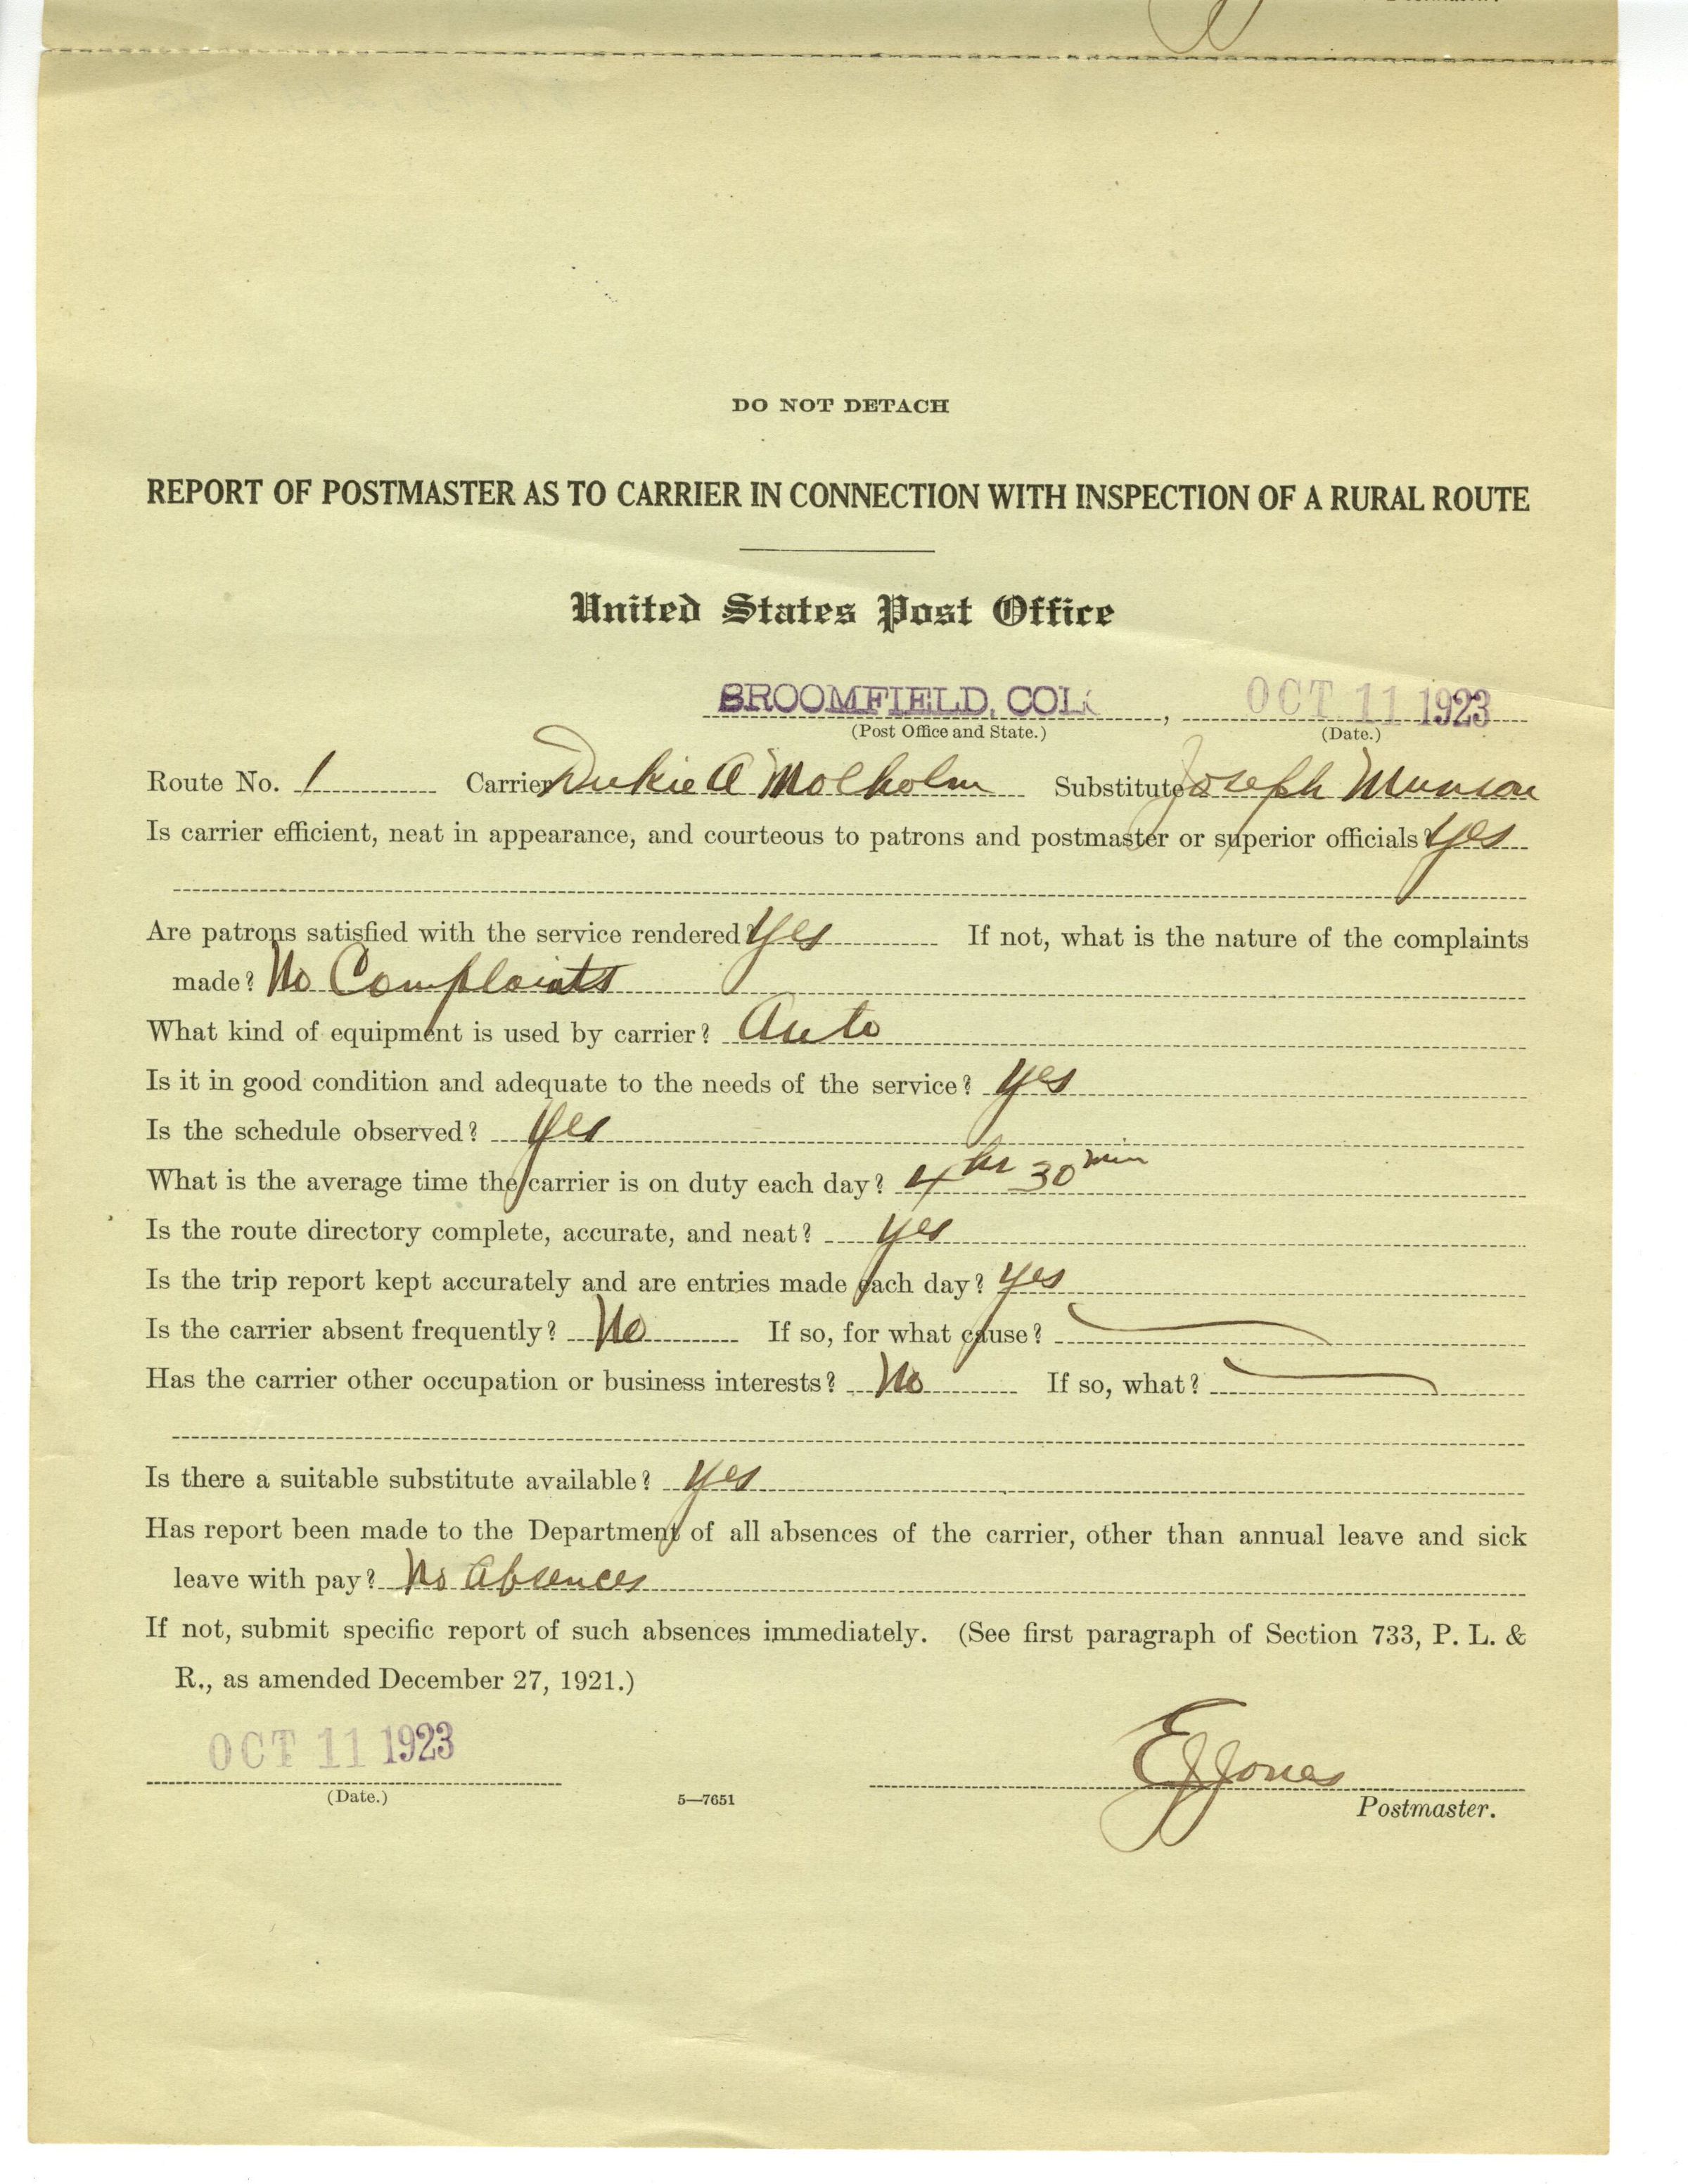 DO NOT DETACH
REPORT OF POSTMASTER AS TO CARRIER IN CONNECTION WITH INSPECTION OF A RURAL ROUTE
United States Post Office
BROOMFIELD, COL. , OCT 11 1923
(Post Office and State.) (Date.)
Route No. 1 Carrier A Molholm Substitute Joseph Munson
Is carrier efficient, neat in appearance, and courteous to patrons and postmaster or superior officials? Yes
Are patrons satisfied with the service rendered? Yes If not, what is the nature of the complaints
made? No Complaints
What kind of equipment is used by carrier? Auto
Is it in good condition and adequate to the needs of the service? Yes
Is the schedule observed? Yes
What is the average time the carrier is on duty each day? 4 hr 30 min
Is the route directory complete, accurate, and neat? Yes
Is the trip report kept accurately and are entries made each day? Yes
Is the carrier absent frequently? No If so, for what cause?
Has the carrier other occupation or business interests? No If so, what?
Is there a suitable substitute available? Yes
Has report been made to the Department of all absences of the carrier, other than annual leave and sick
leave with pay? No Absences
If not, submit specific report of such absences immediately. (See first paragraph of Section 733, P. L. &
R., as amended December 27, 1921.)
OCT 11 1923 E J Jones
(Date.) 5—7651 Postmaster.